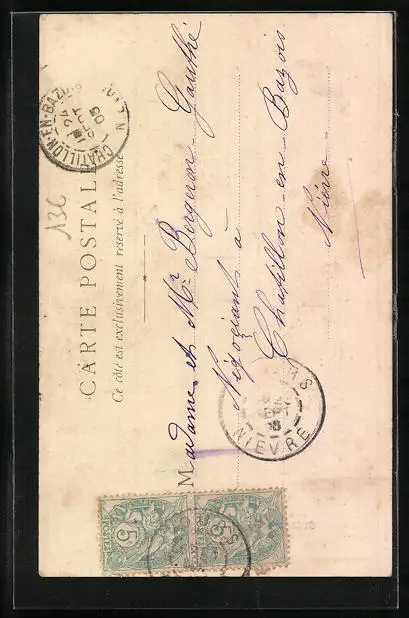 CARTE POSTALE
Ce côté est exclusivement réservé à l'adresse
136
Madame et Mr Bergeron Gauthé
Négociant à
Chatillon-en-Bazois
Nièvre
CHATILLON-EN-BAZOIS
24
05
NIEVRE
5
POSTES
5
POSTES